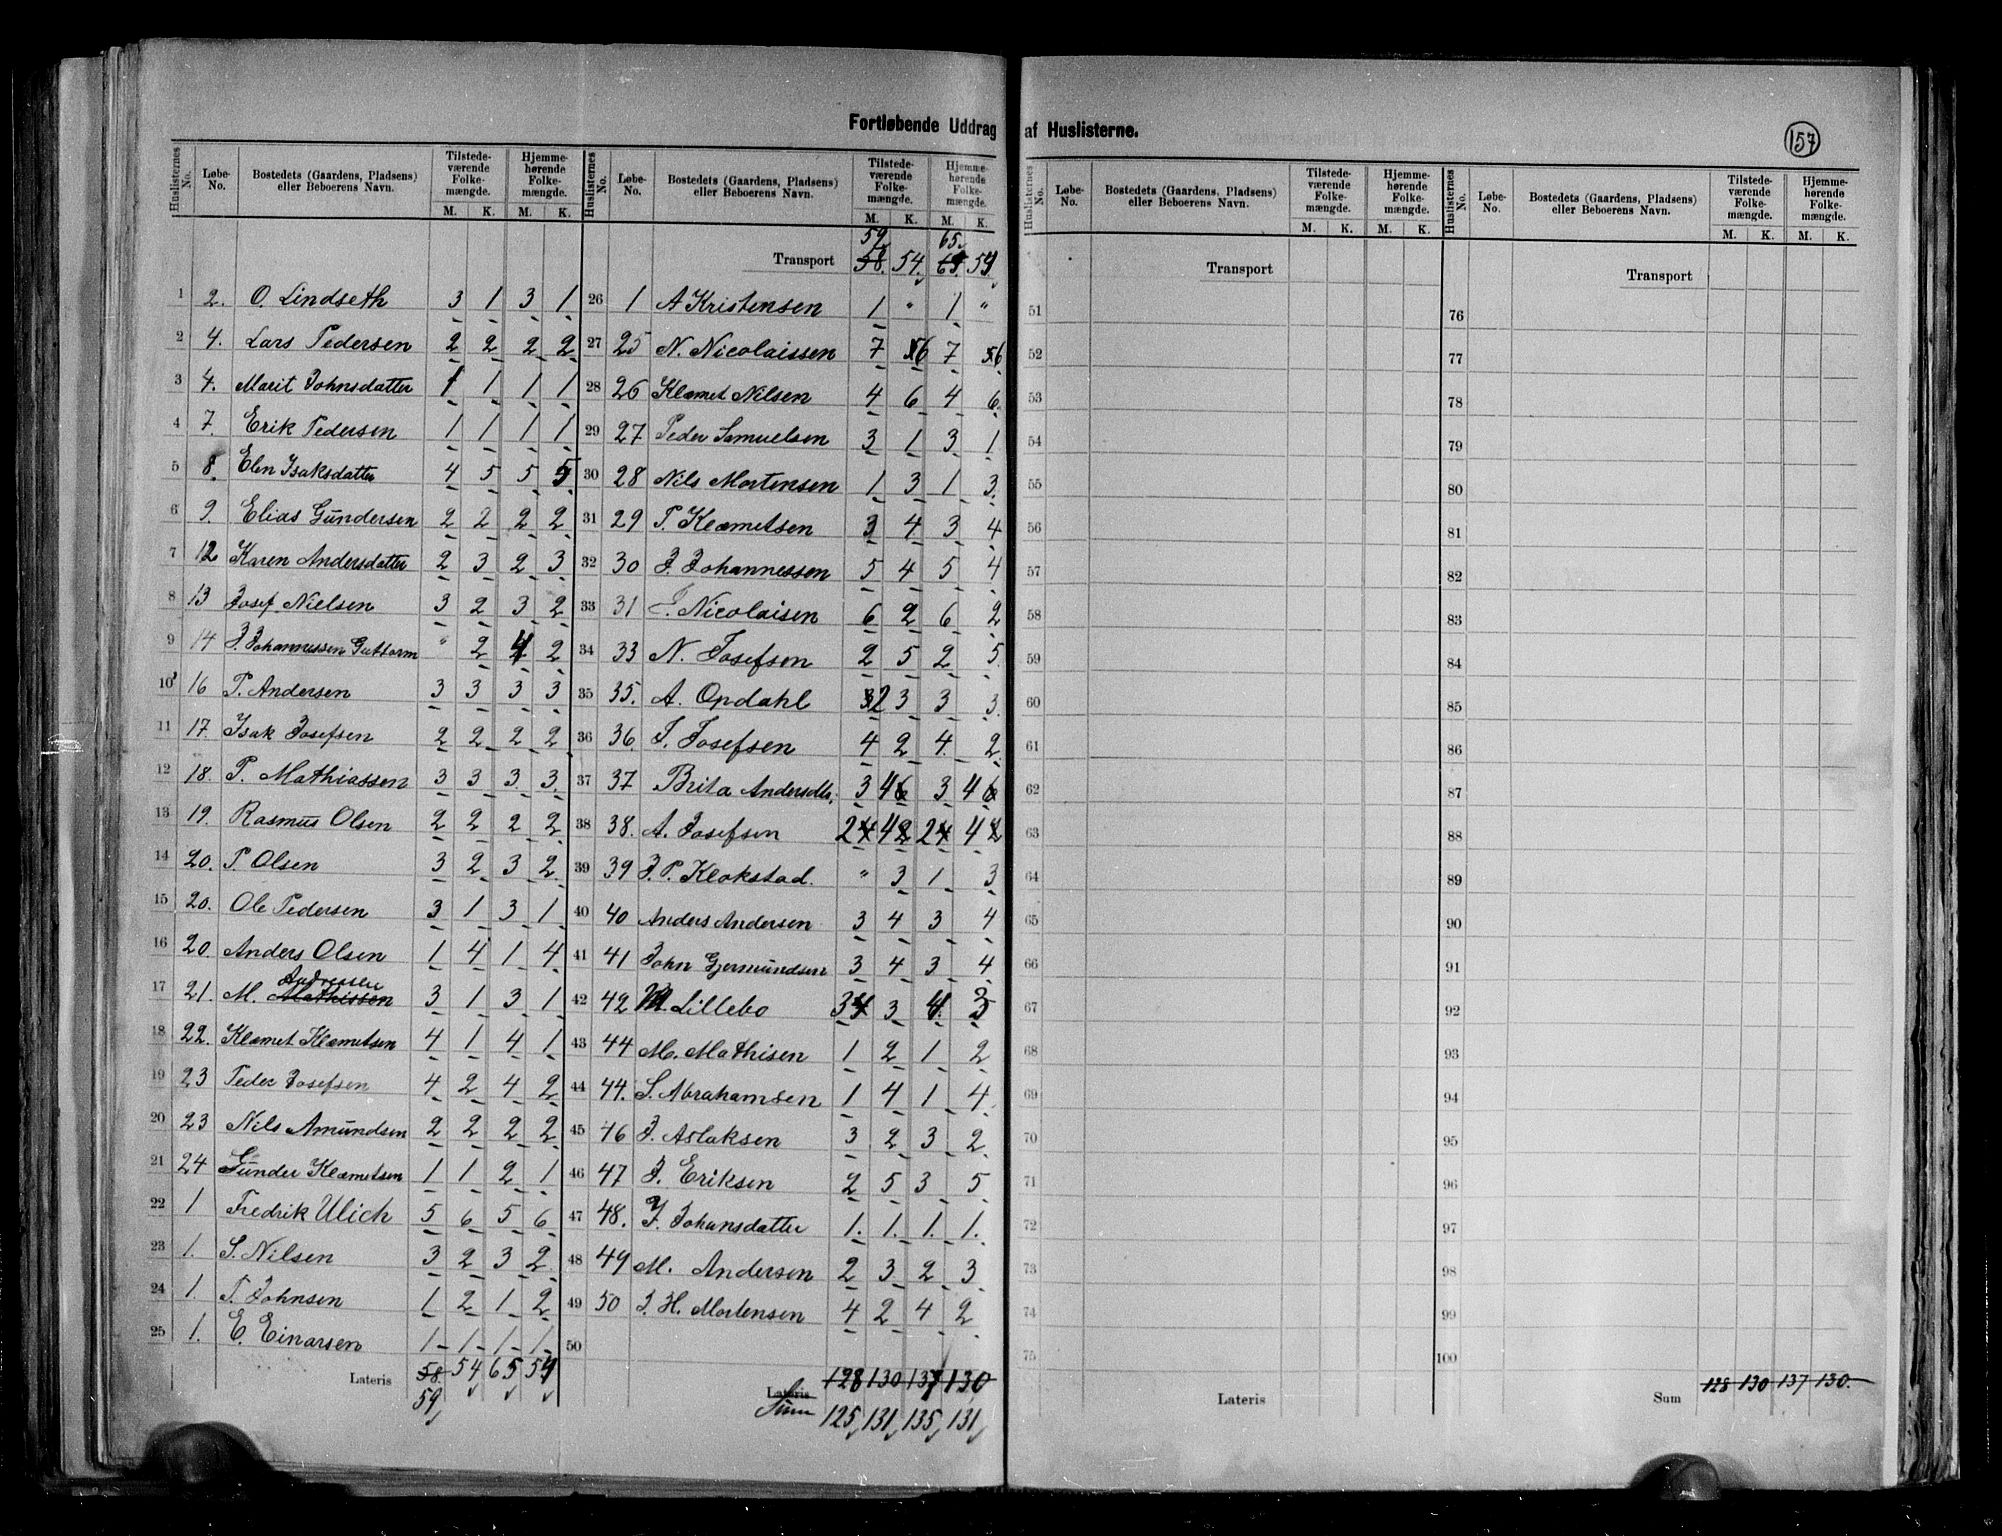 Fortløbende Uddrag af Huslisterne.
157
Huslisternes No. | Løbe-No. | Bostedets (Gaardens, Pladsens) eller Beboerens Navn. | Tilstedeværende Folkemængde. M. K. | Hjemmehørende Folkemængde. M. K.
1 2. O. Lindseth 3 1 3 1
2 4. Lars Pedersen 2 2 2 2
3 4. Marit Johnsdatter 1 1 1 1
4 7. Erik Pedersen 1 1 1 1
5 8. Elen Isaksdatter 4 5 5 5
6 9. Elias Gundersen 2 2 2 2
7 12 Karen Andersdatter 2 3 2 3
8 13 Josef Nielsen 3 2 3 2
9 14 J. Johannessen Guttorm " 2 4 2
10 16 P. Andersen 3 3 3 3
11 17. Isak Josefsen 2 2 2 2
12 18. P. Mathiassen 3 3 3 3
13 19. Rasmus Olsen 2 2 2 2
14 20. P. Olsen 3 2 3 2
15 20. Ole Pedersen 3 1 3 1
16 20. Anders Olsen 1 4 1 4
17 21. M. Mathissen Andressen 3 1 3 1
18 22. Klemet Klemetsen 4 1 4 1
19 23 Peder Josefsen 4 2 4 2
20 23 Nils Amundsen 2 2 2 2
21 24 Gunder Klemetsen 1 1 2 1
22 1 Fredrik Ulich 5 6 5 6
23 1. S. Nilsen 3 2 3 2
24 1. P. Johnsen 1 2 1 2
25 1. E. Einarsen 1 1 1 1
Lateris 58. 54 65 54
59
Huslisternes No. | Løbe-No. | Bostedets (Gaardens, Pladsens) eller Beboerens Navn. | Tilstedeværende Folkemængde. M. K. | Hjemmehørende Folkemængde. M. K.
59 65.
Transport 58. 54. 65. 54
26 1 A Kristensen 1 " 1 "
27 25 N. Nicolaissen 7 6 7 6
28 26 Klemet Nilsen 4 6 4 6.
29 27 Peder Samuelsen 3 1 3 1
30 28 Nils Mortensen 1 3 1 3.
31 29 P. Klemetsen 3 4 3 4
32 30 J. Johannessen 5 4 5 4
33 31 J. Nicolaisen 6 2 6 2
34 33 N. Josefsen 2 5 2 5.
35 35. A. Opdahl 2 3 3 3.
36 36. J. Josefsen 4 2 4. 2
37 37 Brita Andersdtr. 3 4 6 3 4 6
38 38. A. Josefsen 2 4 4 2 2 4 4 2
39 39 J. P. Klokstad. " 3 1 3
40 40 Anders Andersen 3 4 3 4
41 41 John Germundsen 3 4 3 4
42 42 M. Lillebo 3 4 3 4 3
43 44 M. Mathisen 1 2 1 2
44 44. S. Abrahamsen 1 4 1 4.
45 46 J. Aslaksen 3 2 3 2
46 47 J. Eriksen 2 5 3 5
47 48. J. Johansdatter 1. 1. 1. 1.
48 49 M. Andersen 2 3 2 3
49 50 J. H. Mortensen 4 2 4 2
50
Lateris 128 130 137 130
Sum 125 131 135 131
Huslisternes No. | Løbe-No. | Bostedets (Gaardens, Pladsens) eller Beboerens Navn. | Tilstedeværende Folkemængde. M. K. | Hjemmehørende Folkemængde. M. K.
Transport
51
52
53
54
55
56
57
58
59
60
61
62
63
64
65
66
67
68
69
70
71
72
73
74
75
Lateris
Huslisternes No. | Løbe-No. | Bostedets (Gaardens, Pladsens) eller Beboerens Navn. | Tilstedeværende Folkemængde. M. K. | Hjemmehørende Folkemængde. M. K.
Transport
76
77
78
79
80
81
82
83
84
85
86
87
88
89
90
91
92
93
94
95
96
97
98
99
100
Sum 128 130 137 130.